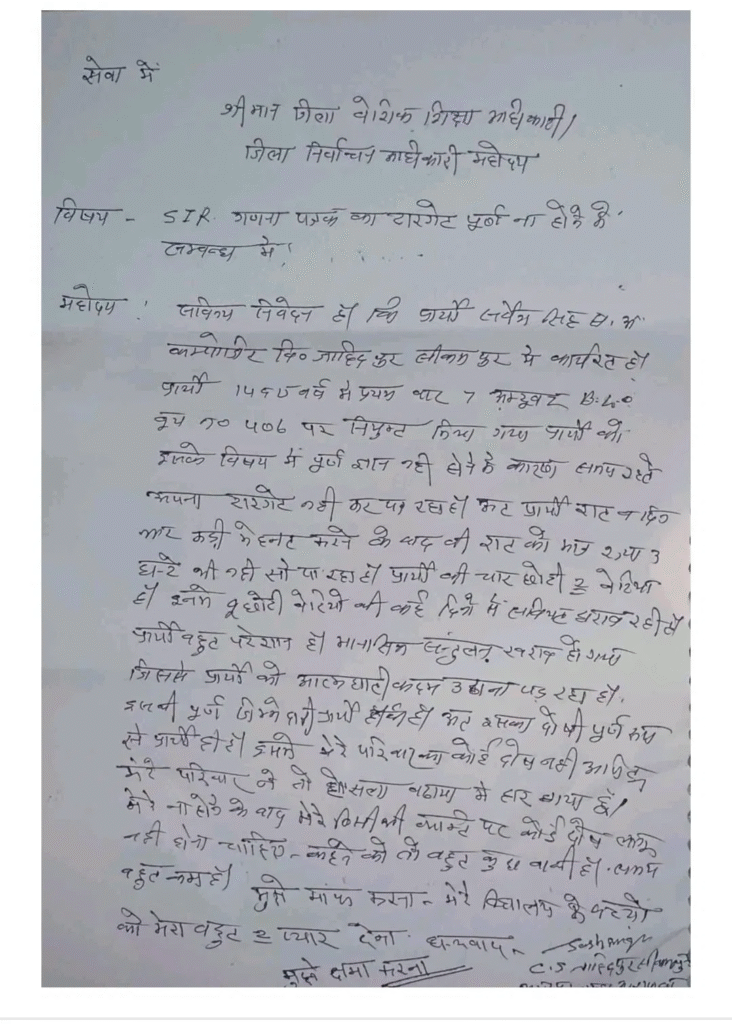 सेवा में
श्रीमान जिला बेशिक शिक्षा अधिकारी/
जिला निर्वाचन अधिकारी महोदय
विषय - SIR. गणना पत्रक का टारगेट पूर्ण ना होने के
सम्बन्ध में!
महोदय! सविनय निवेदन है। कि प्रार्थी सर्वेश सिंह स. अ.
कम्पोजिट वि० जाहिदपुर सीकमपुर में कार्यरत है।
प्रार्थी वर्ष में प्रथम बार 7 अक्टूबर B.L.O
बूथ no 406 पर नियुक्त किया गया प्रार्थी को
इसके विषय में पूर्ण ज्ञान नही होने के कारण समय रहते
अपना टारगेट नही कर पा रहा है। प्रार्थी रात व दिन
कड़ी मेहनत करने के बाद भी रात को मात्र 2 या 3
घन्टे भी नही सो पा रहा है। प्रार्थी की चार छोटी २ बेटिया
है। इनमे २ छोटी बेटियो की कई दिनो से तबियत खराब रही है।
प्रार्थी बहुत परेशान है। मानसिक सन्तुलन खराब हो गया
जिससे प्रार्थी को आत्मघाती कदम उठाना पड़ रहा है।
इसकी पूर्ण जिम्मेदारी प्रार्थी की है। इसका दोषी पूर्ण रूप
से प्रार्थी ही है। इसमे मेरे परिवार का कोई दोष नही
मेरे परिवार ने तो होसला बढाया मै हार गया हूँ।
मेरे ना होने के बाद मेरे किसी भी पर कोई दोष
नही होना चाहिए - कहने को तो बहुत कुछ बाकी है। समय
बहुत कम है।
मुझे माफ करना - मेरे विद्यालय के बच्चो
को मेरा बहुत २ प्यार देना. धन्यवाद
मुझे क्षमा करना
C.S जाहिदपुर सीकमपुर